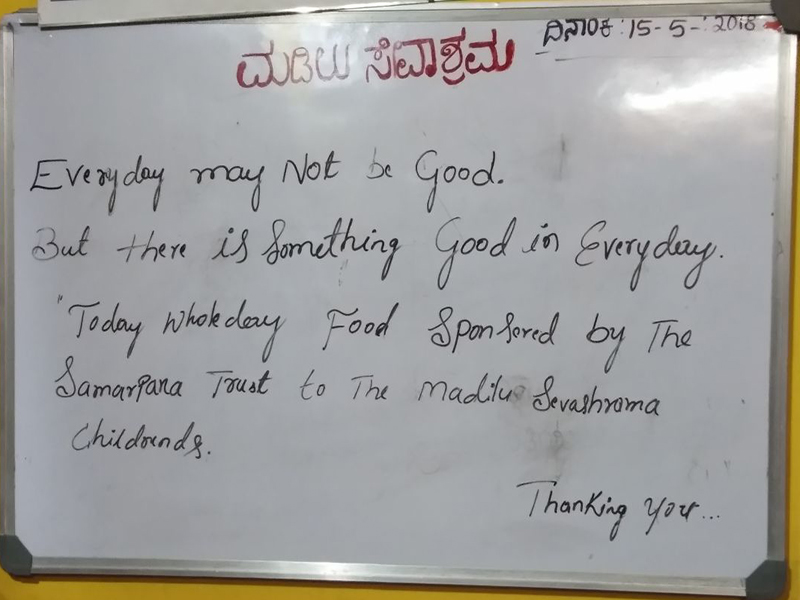 ದಿನಾಂಕ: 15-5-:2018
ಮಡಿಲು ಸೇವಾಶ್ರಮ
Everyday may Not be Good.
But there is Something Good in Everyday.
"Today Wholeday Food Sponsered by The
Samarpana Trust to The Madilu Sevashrama
Childrends.
Thanking You...